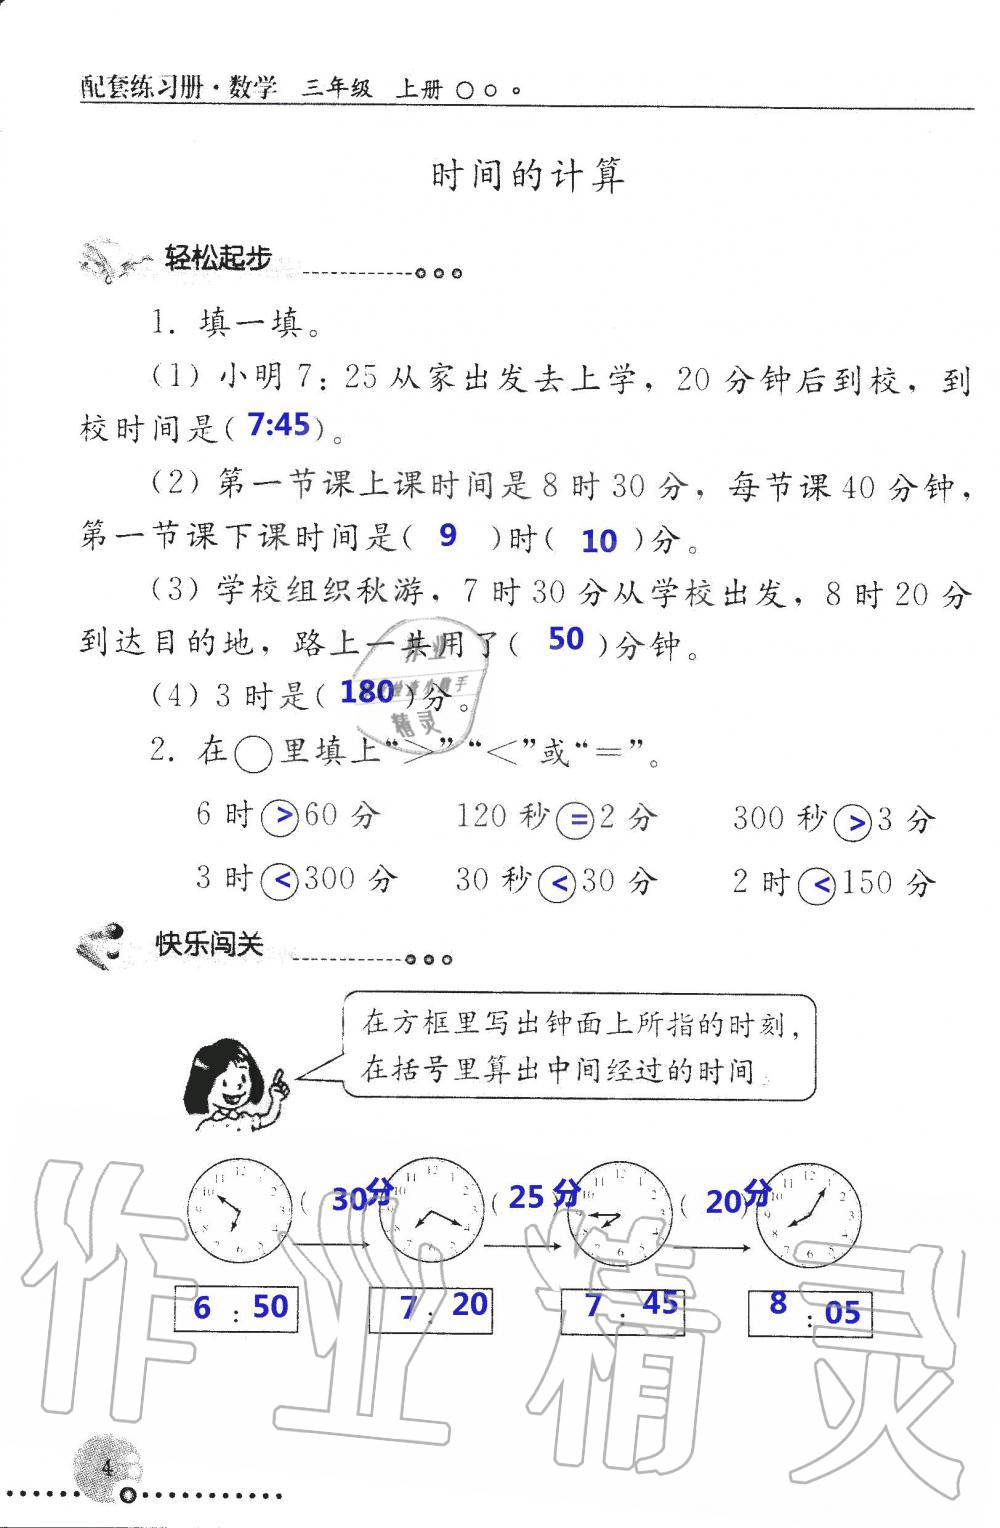 配套练习册·数学 三年级 上册
时间的计算
轻松起步
1. 填一填。
(1) 小明7：25从家出发去上学，20分钟后到校，到
校时间是( 7:45 )。
(2) 第一节课上课时间是8时30分，每节课40分钟，
第一节课下课时间是( 9 )时( 10 )分。
(3) 学校组织秋游，7时30分从学校出发，8时20分
到达目的地，路上一共用了( 50 )分钟。
(4) 3时是( 180 )分。
2. 在○里填上“>”“<”或“=”。
6时>60分 120秒=2分 300秒>3分
3时<300分 30秒<30分 2时<150分
快乐闯关
在方框里写出钟面上所指的时刻，
在括号里算出中间经过的时间
( 30分 ( 25分 ( 20分
6 : 50 7 : 20 7 : 45 8 : 05
作业精灵
作业
检查小助手
精灵
4